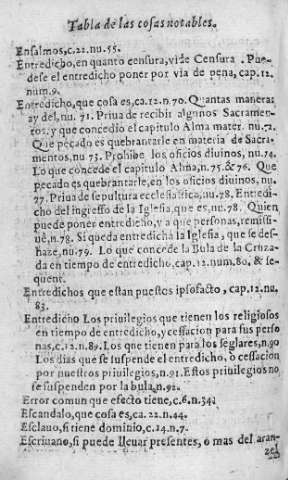 Tabla de las cosas notables.
Ensalmos, c. 22. nu. 55.
Entredicho, en quanto censura, vide Censura. Pue-
dese el entredicho poner por via de pena, cap. 12.
num. 9.
Entredicho, que cosa es, ca. 12. n 70. Quantas maneras
ay del, nu. 71. Priua de recibir algunos Sacramen-
tos. y que concedio el capitulo Alma mater. nu. 72.
Que pecado es quebrantarle en materia de Sacra-
mentos, nu 73. Prohibe los oficios diuinos, nu. 74.
Lo que concede el capitulo Alma, n. 75. & 76. Que
pecado es quebrantarle, en los oficios diuinos, nu.
77. Priua de sepultura ecclesiastica, nu. 78. Entredi-
cho del ingresso de la Iglesia, que es, nu. 78. Quien
puede poner entredicho, y a que personas, remissi-
uè, n. 78. Si queda entredicha la Iglesia, que se des-
haze, nu. 79. Lo que concede la Bula de la Cruza-
da en tiempo de entredicho, cap. 12. num. 80. & se-
quent.
Entredichos que estan puestos ipsofacto, cap. 12. nu.
83.
Entredicho Los priuilegios que tienen los religiosos
en tiempo de entredicho, y cessacion para sus perso
nas, c. 12. n. 89. Los que tienen para los seglares, n. 90
Los dias que se suspende el entredicho, o cessacion
por nuestros priuilegios, n. 91. Estos priuilegios no
se suspenden por la bula, n. 92.
Error comun que efecto tiene, c. 6. n. 34.
Escandalo, que cosa es, ca. 22. n. 44.
Esclauo, si tiene dominio, c. 14. n. 7.
Escriuano, si puede lleuar presentes, o mas del aran-
zel